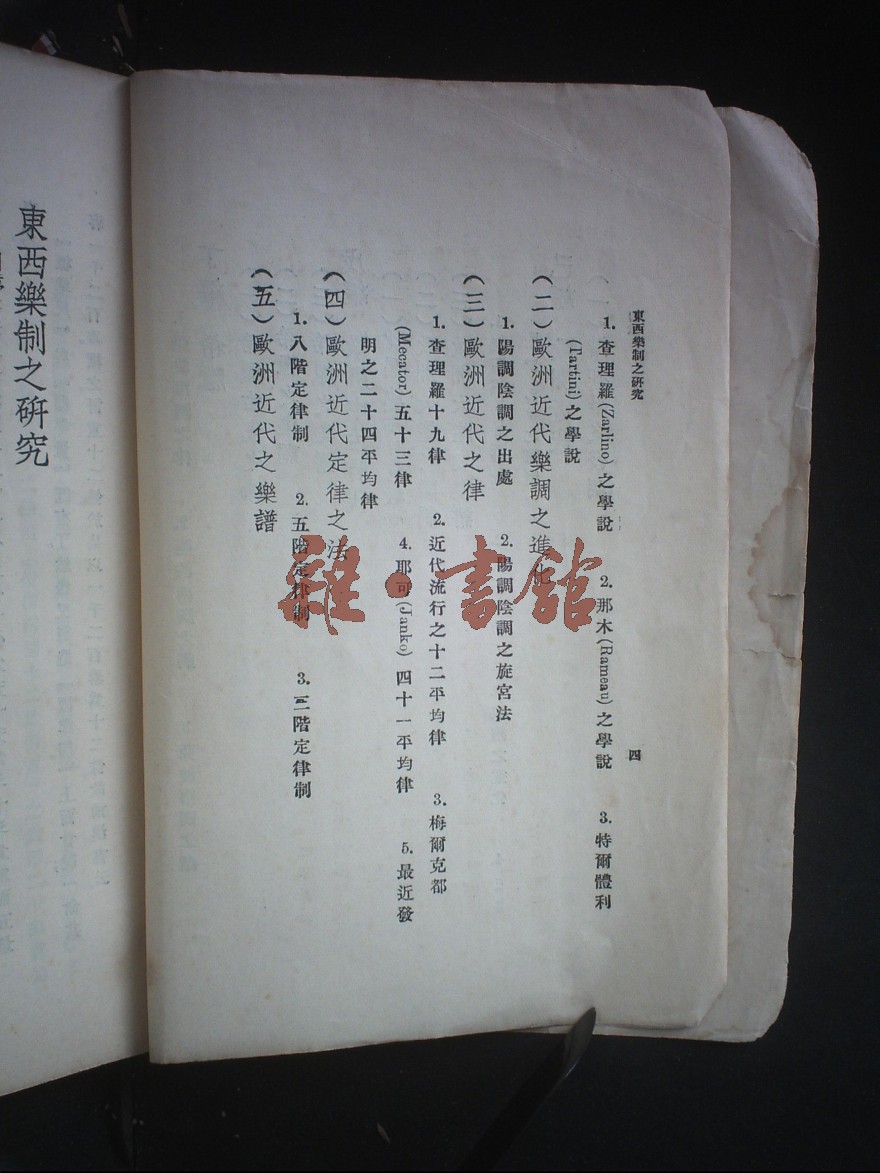 東西樂制之研究
四
1. 査理羅(Zarlino)之學說 2. 那木(Rameau)之學說 3. 特爾體利
(Tartini)之學說
(二)歐洲近代樂調之進化
1. 陽調陰調之出處 2. 陽調陰調之旋宮法
(三)歐洲近代之律
1. 査理羅十九律 2. 近代流行之十二平均律 3. 梅爾克都
(Mecator)五十三律 4. 耶可(Janko)四十一平均律 5. 最近發
明之二十四平均律
(四)歐洲近代定律之法
1. 八階定律制 2. 五階定律制 3. 三階定律制
(五)歐洲近代之樂譜
東西樂制之硏究
雜·書館